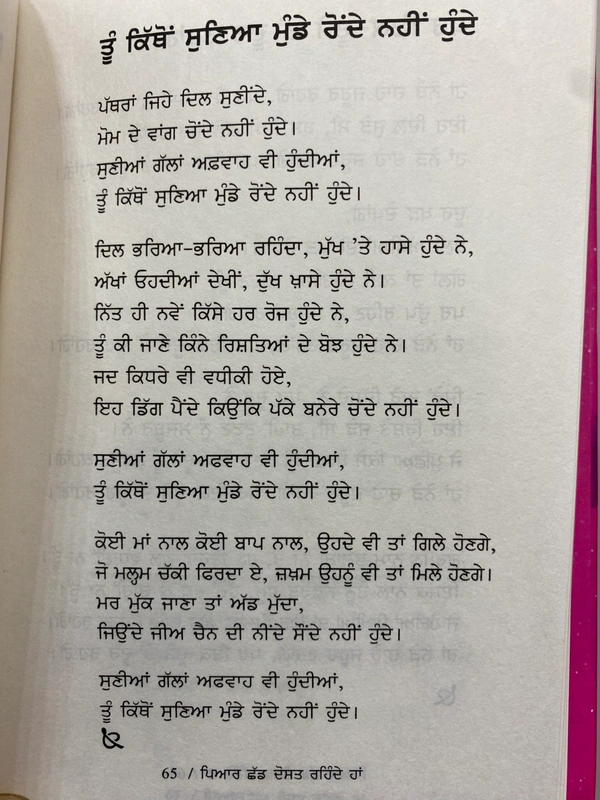 ਤੂੰ ਕਿੱਥੋਂ ਸੁਣਿਆ ਮੁੰਡੇ ਰੋਂਦੇ ਨਹੀਂ ਹੁੰਦੇ
ਪੱਥਰਾਂ ਜਿਹੇ ਦਿਲ ਸੁਣੀਂਦੇ,
ਮੋਮ ਦੇ ਵਾਂਗ ਚੋਂਦੇ ਨਹੀਂ ਹੁੰਦੇ।
ਸੁਣੀਆਂ ਗੱਲਾਂ ਅਫ਼ਵਾਹ ਵੀ ਹੁੰਦੀਆਂ,
ਤੂੰ ਕਿੱਥੋਂ ਸੁਣਿਆ ਮੁੰਡੇ ਰੋਂਦੇ ਨਹੀਂ ਹੁੰਦੇ।
ਦਿਲ ਭਰਿਆ-ਭਰਿਆ ਰਹਿੰਦਾ, ਮੁੱਖ ’ਤੇ ਹਾਸੇ ਹੁੰਦੇ ਨੇ,
ਅੱਖਾਂ ਓਹਦੀਆਂ ਦੇਖੀਂ, ਦੁੱਖ ਖ਼ਾਸੇ ਹੁੰਦੇ ਨੇ।
ਨਿੱਤ ਹੀ ਨਵੇਂ ਕਿੱਸੇ ਹਰ ਰੋਜ ਹੁੰਦੇ ਨੇ,
ਤੂੰ ਕੀ ਜਾਣੇ ਕਿੰਨੇ ਰਿਸ਼ਤਿਆਂ ਦੇ ਬੋਝ ਹੁੰਦੇ ਨੇ।
ਜਦ ਕਿਧਰੇ ਵੀ ਵਧੀਕੀ ਹੋਏ,
ਇਹ ਡਿੱਗ ਪੈਂਦੇ ਕਿਉਂਕਿ ਪੱਕੇ ਬਨੇਰੇ ਚੋਂਦੇ ਨਹੀਂ ਹੁੰਦੇ।
ਸੁਣੀਆਂ ਗੱਲਾਂ ਅਫਵਾਹ ਵੀ ਹੁੰਦੀਆਂ,
ਤੂੰ ਕਿੱਥੋਂ ਸੁਣਿਆ ਮੁੰਡੇ ਰੋਂਦੇ ਨਹੀਂ ਹੁੰਦੇ।
ਕੋਈ ਮਾਂ ਨਾਲ ਕੋਈ ਬਾਪ ਨਾਲ, ਉਹਦੇ ਵੀ ਤਾਂ ਗਿਲੇ ਹੋਣਗੇ,
ਜੋ ਮਲ੍ਹਮ ਚੱਕੀ ਫਿਰਦਾ ਏ, ਜ਼ਖ਼ਮ ਉਹਨੂੰ ਵੀ ਤਾਂ ਮਿਲੇ ਹੋਣਗੇ।
ਮਰ ਮੁੱਕ ਜਾਣਾ ਤਾਂ ਅੱਡ ਮੁੱਦਾ,
ਜਿਉਂਦੇ ਜੀਅ ਚੈਨ ਦੀ ਨੀਂਦੇ ਸੌਂਦੇ ਨਹੀਂ ਹੁੰਦੇ।
ਸੁਣੀਆਂ ਗੱਲਾਂ ਅਫਵਾਹ ਵੀ ਹੁੰਦੀਆਂ,
ਤੂੰ ਕਿੱਥੋਂ ਸੁਣਿਆ ਮੁੰਡੇ ਰੋਂਦੇ ਨਹੀਂ ਹੁੰਦੇ।
65 / ਪਿਆਰ ਛੱਡ ਦੋਸਤ ਰਹਿੰਦੇ ਹਾਂ